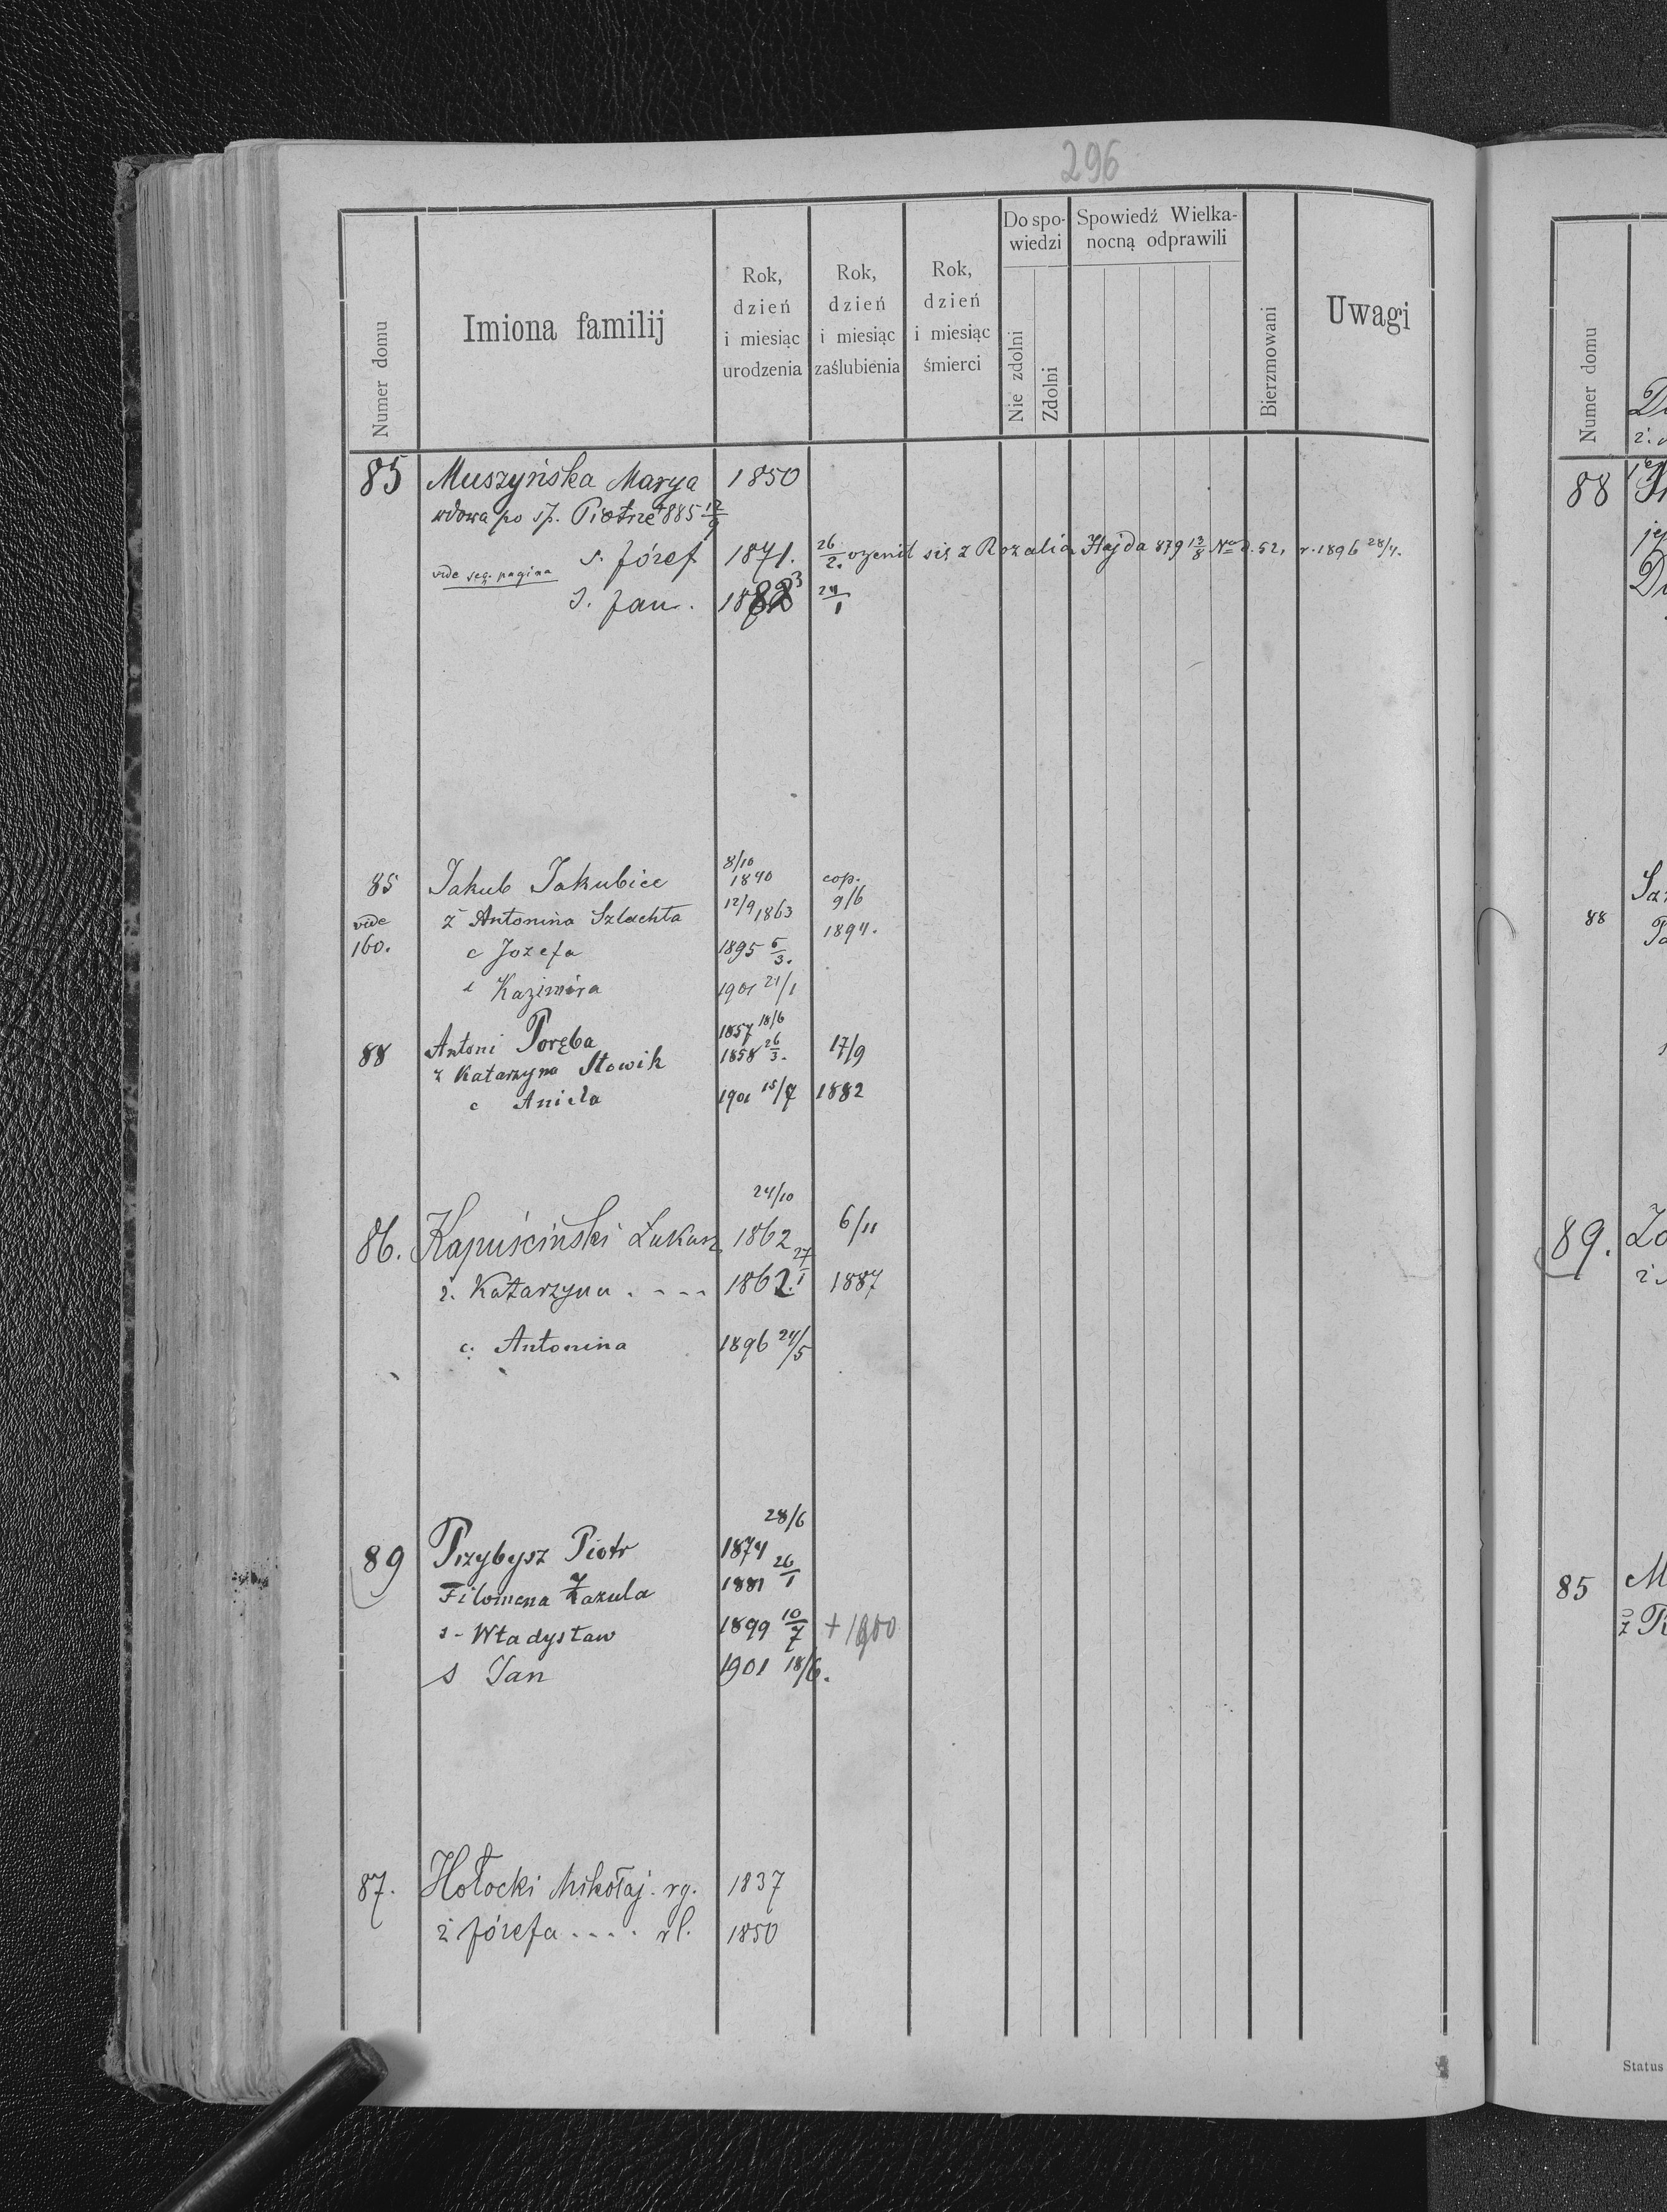 296
Numer domu | Imiona familij | Rok, dzień i miesiąc urodzenia | Rok, dzień i miesiąc zaślubienia | Rok, dzień i miesiąc śmierci | Do spowiedzi | Nie zdolni | Zdolni | Spowiedź Wielkanocną odprawili | Bierzmowani | Uwagi
85 Muszyńska Marya 1850
wdowa po śp. Piotrze 885 12/9
s. Józef 1871. 26/2. ożenił się z Rozalią Hajda 879 13/8 No d. 52, r. 1896 28/4.
vide seq. pagina
s. Jan. 1883 24/1
8/10
85 Jakub Jakubiec 1840 cop.
vide ż Antonina Szlachta 12/9 1863 9/6
160. c Jozefa 1895 5/3. 1894.
Kazimira 1901 21/1
88 Antoni Poręba 1857 18/6
ż Katarzyna Słowik 1858 26/3. 17/9
c Aniela 1901 15/7 1882
24/10
86. Kapuściński Łukasz 1862 6/11
ż. Katarzyna . . . . 1862. 27/1 1887
c. Antonina 1896 24/5
28/6
89 Przybysz Piotr 1874
Filomena Zazula 1881 26/1
s - Władysław 1899 10/7 + 1900
s Jan 1901 18/6.
87. Hołocki Mikołaj. rg. 1837
ż Józefa . . . . rl. 1850
Numer domu
88
88
89.
85
Status